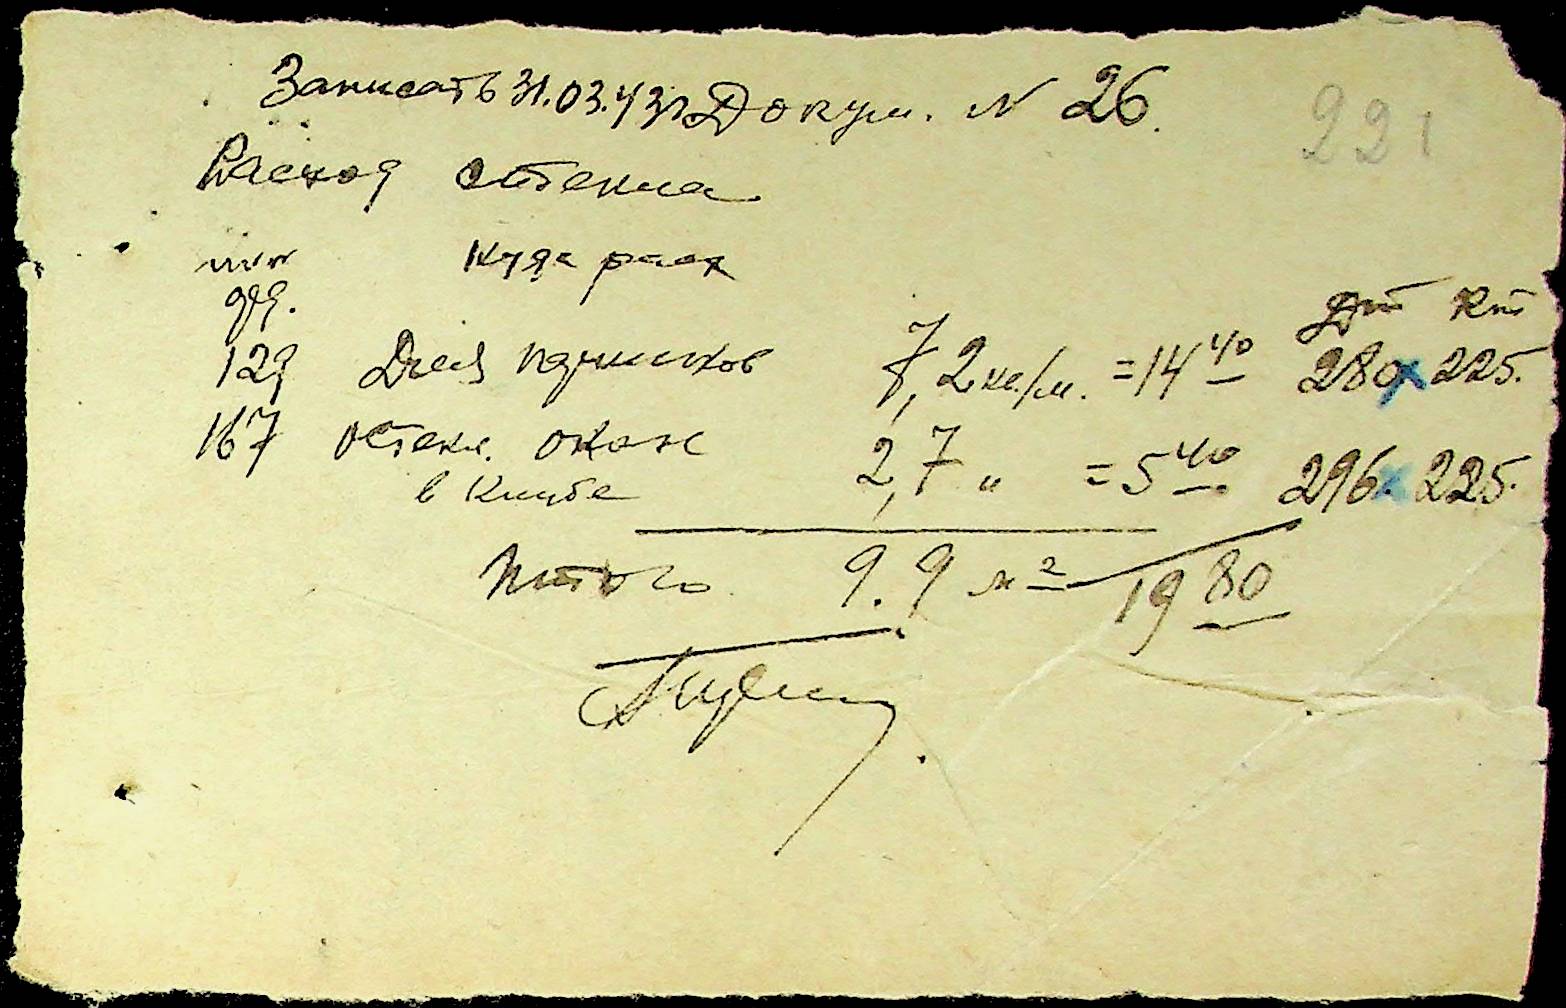 Записать 31.03.43г Докум. N 26.
221
Расход стекла
Куда расх
Дт Кт
129 Для парников 7,2 кв/м. = 14 40 280 x 225.
167 остекл. окон 2,7 " = 5 40 296 x 225.
в клубе
Итого 9.9 м² 19 80